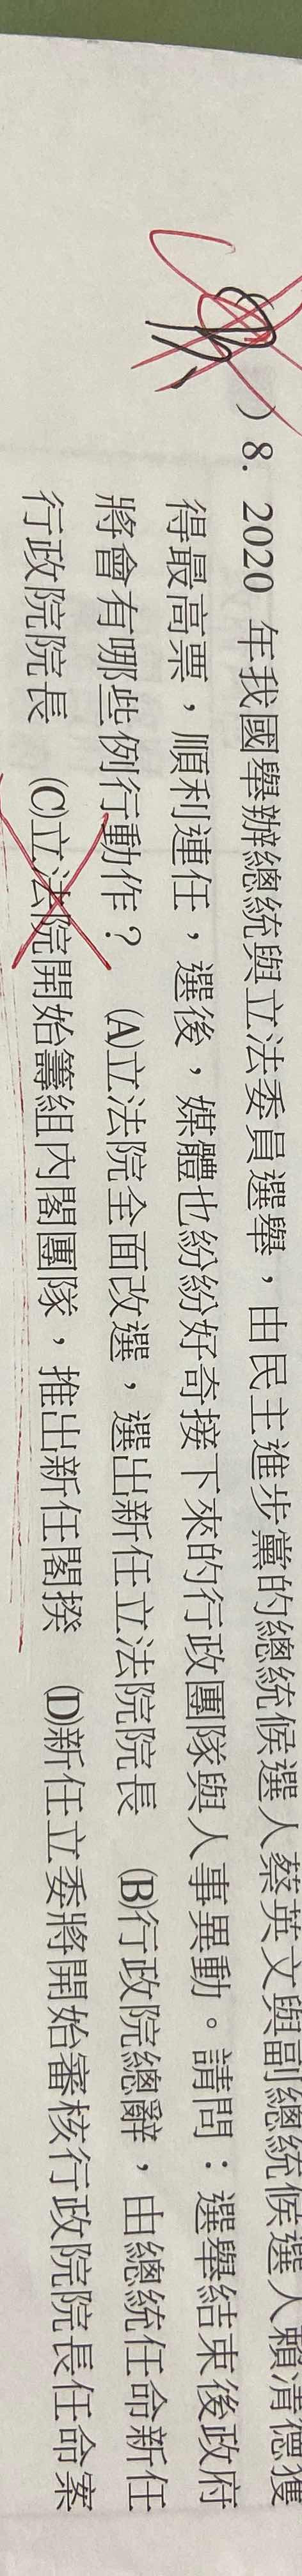 )8. 2020 年我國舉辦總統與立法委員選舉，由民主進步黨的總統候選人蔡英文與副總統候選人賴清德獲
得最高票，順利連任，選後，媒體也紛紛好奇接下來的行政團隊與人事異動。請問：選舉結束後政府
將會有哪些例行動作？ (A)立法院全面改選，選出新任立法院院長 (B)行政院總辭，由總統任命新任
行政院院長 (C)立法院開始籌組內閣團隊，推出新任閣揆 (D)新任立委將開始審核行政院院長任命案